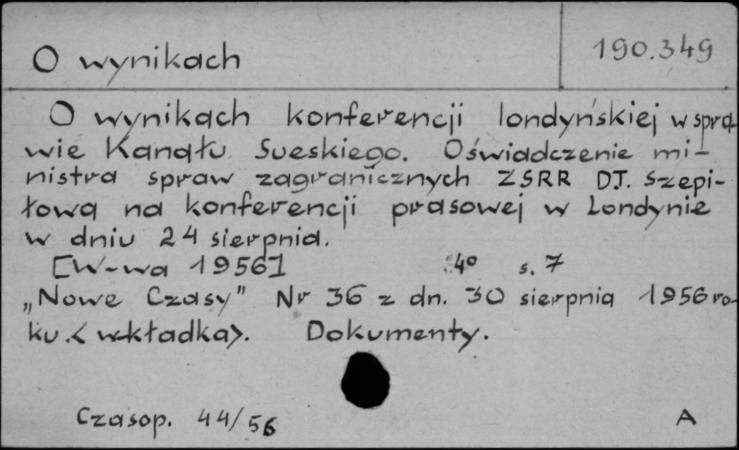 O wynikach
190.349
O wynikach konferencji londyńskiej w spra-
wie Kanału Sueskiego. Oświadczenie mi-
nistra spraw zagranicznych ZSRR D.T. Szepi-
łowa na konferencji prasowej w Londynie
w dniu 24 sierpnia.
[W-wa 1956] 4° s. 7
„Nowe Czasy" Nr 36 z dn. 30 sierpnia 1956 ro-
ku. <wkładka>. Dokumenty.
Czasop. 44/56 A